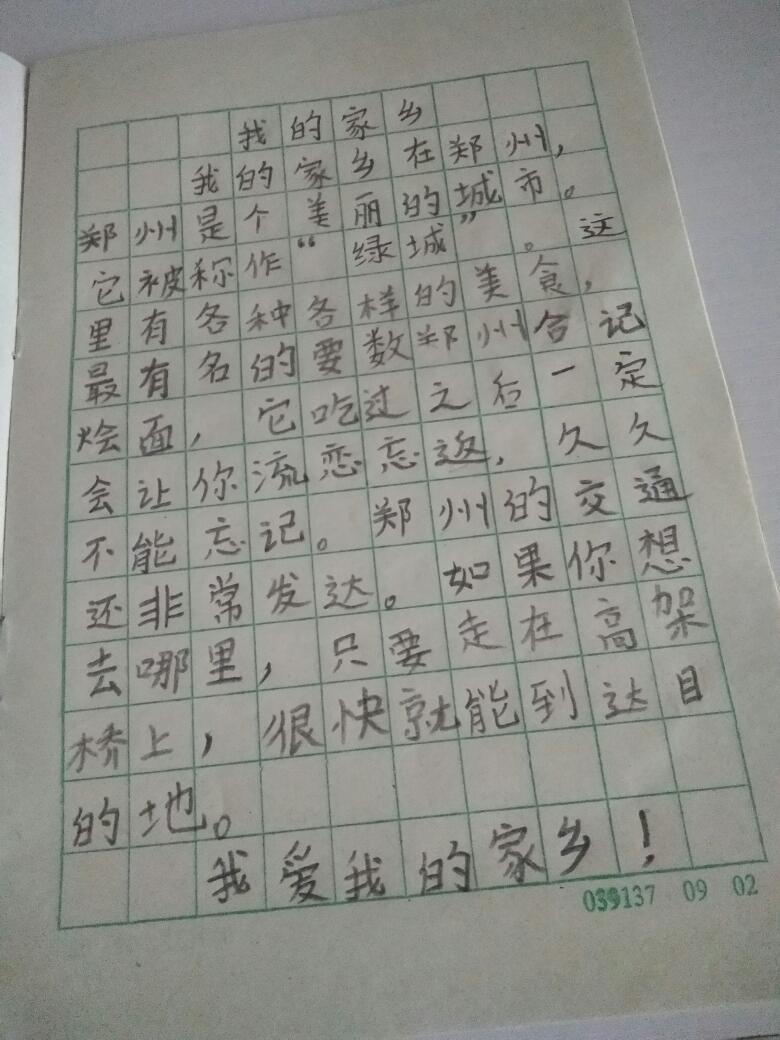 我的家乡
我的家乡在郑州，
郑州是个美丽的城市。
它被称作“绿城”。这
里有各种各样的美食，
最有名的要数郑州合记
烩面，它吃过之后一定
会让你流恋忘返，久久
不能忘记。郑州的交通
还非常发达。如果你想
去哪里，只要走在高架
桥上，很快就能到达目
的地。
我爱我的家乡！
039137 09 02